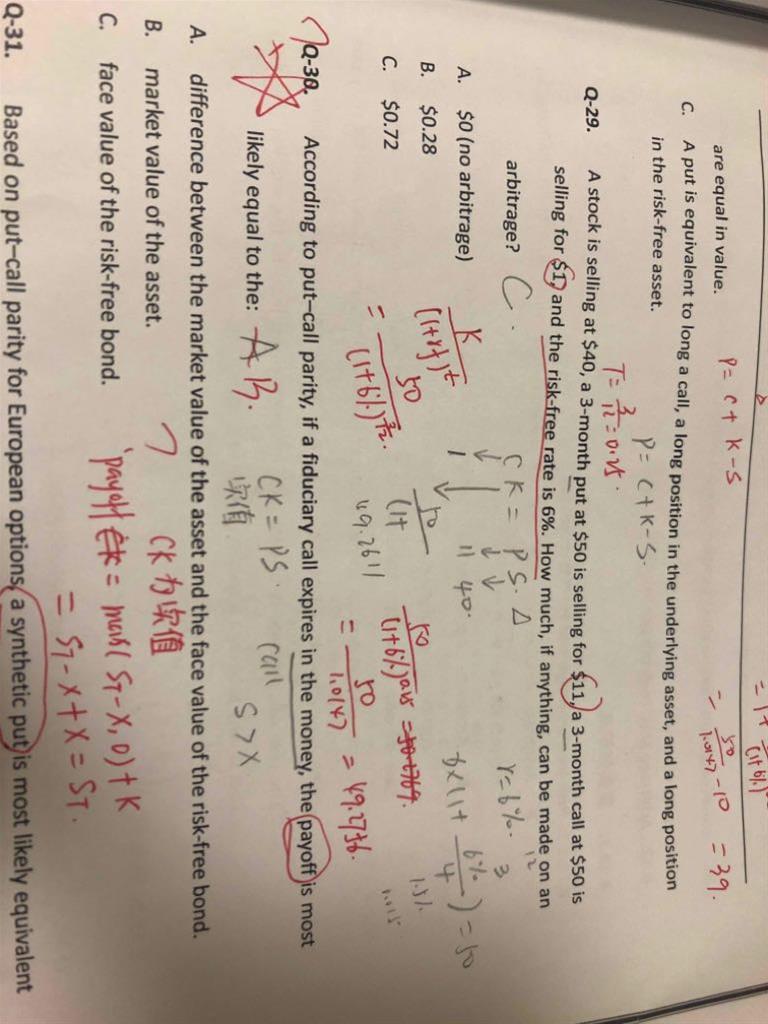 are equal in value.
P = C + K - S
C. A put is equivalent to long a call, a long position in the underlying asset, and a long position
in the risk-free asset.
P = C + K - S.
= 50/1.0147 - 10 = 39.
T = 3/12 = 0.25.
Q-29. A stock is selling at $40, a 3-month put at $50 is selling for $11, a 3-month call at $50 is
selling for $1, and the risk-free rate is 6%. How much, if anything, can be made on an
arbitrage? C.
CK = PS.
r = 6%. 3/12
A. $0 (no arbitrage)
B. $0.28
C. $0.72
K/(1+rf)^t
= 50/(1+6%)^3/12.
1 11 40.
49.2611
50/(1+6%)^0.25
= 50/1.0147 = 49.2756.
(1 + 6%/4) = 50
1.5%
1.015
Q-30. According to put–call parity, if a fiduciary call expires in the money, the payoff is most
likely equal to the: A B.
CK = PS. call S > X
A. difference between the market value of the asset and the face value of the risk-free bond.
B. market value of the asset.
C. face value of the risk-free bond.
payoff = max(ST - X, 0) + K
= ST - X + X = ST.
Q-31. Based on put–call parity for European options, a synthetic put is most likely equivalent